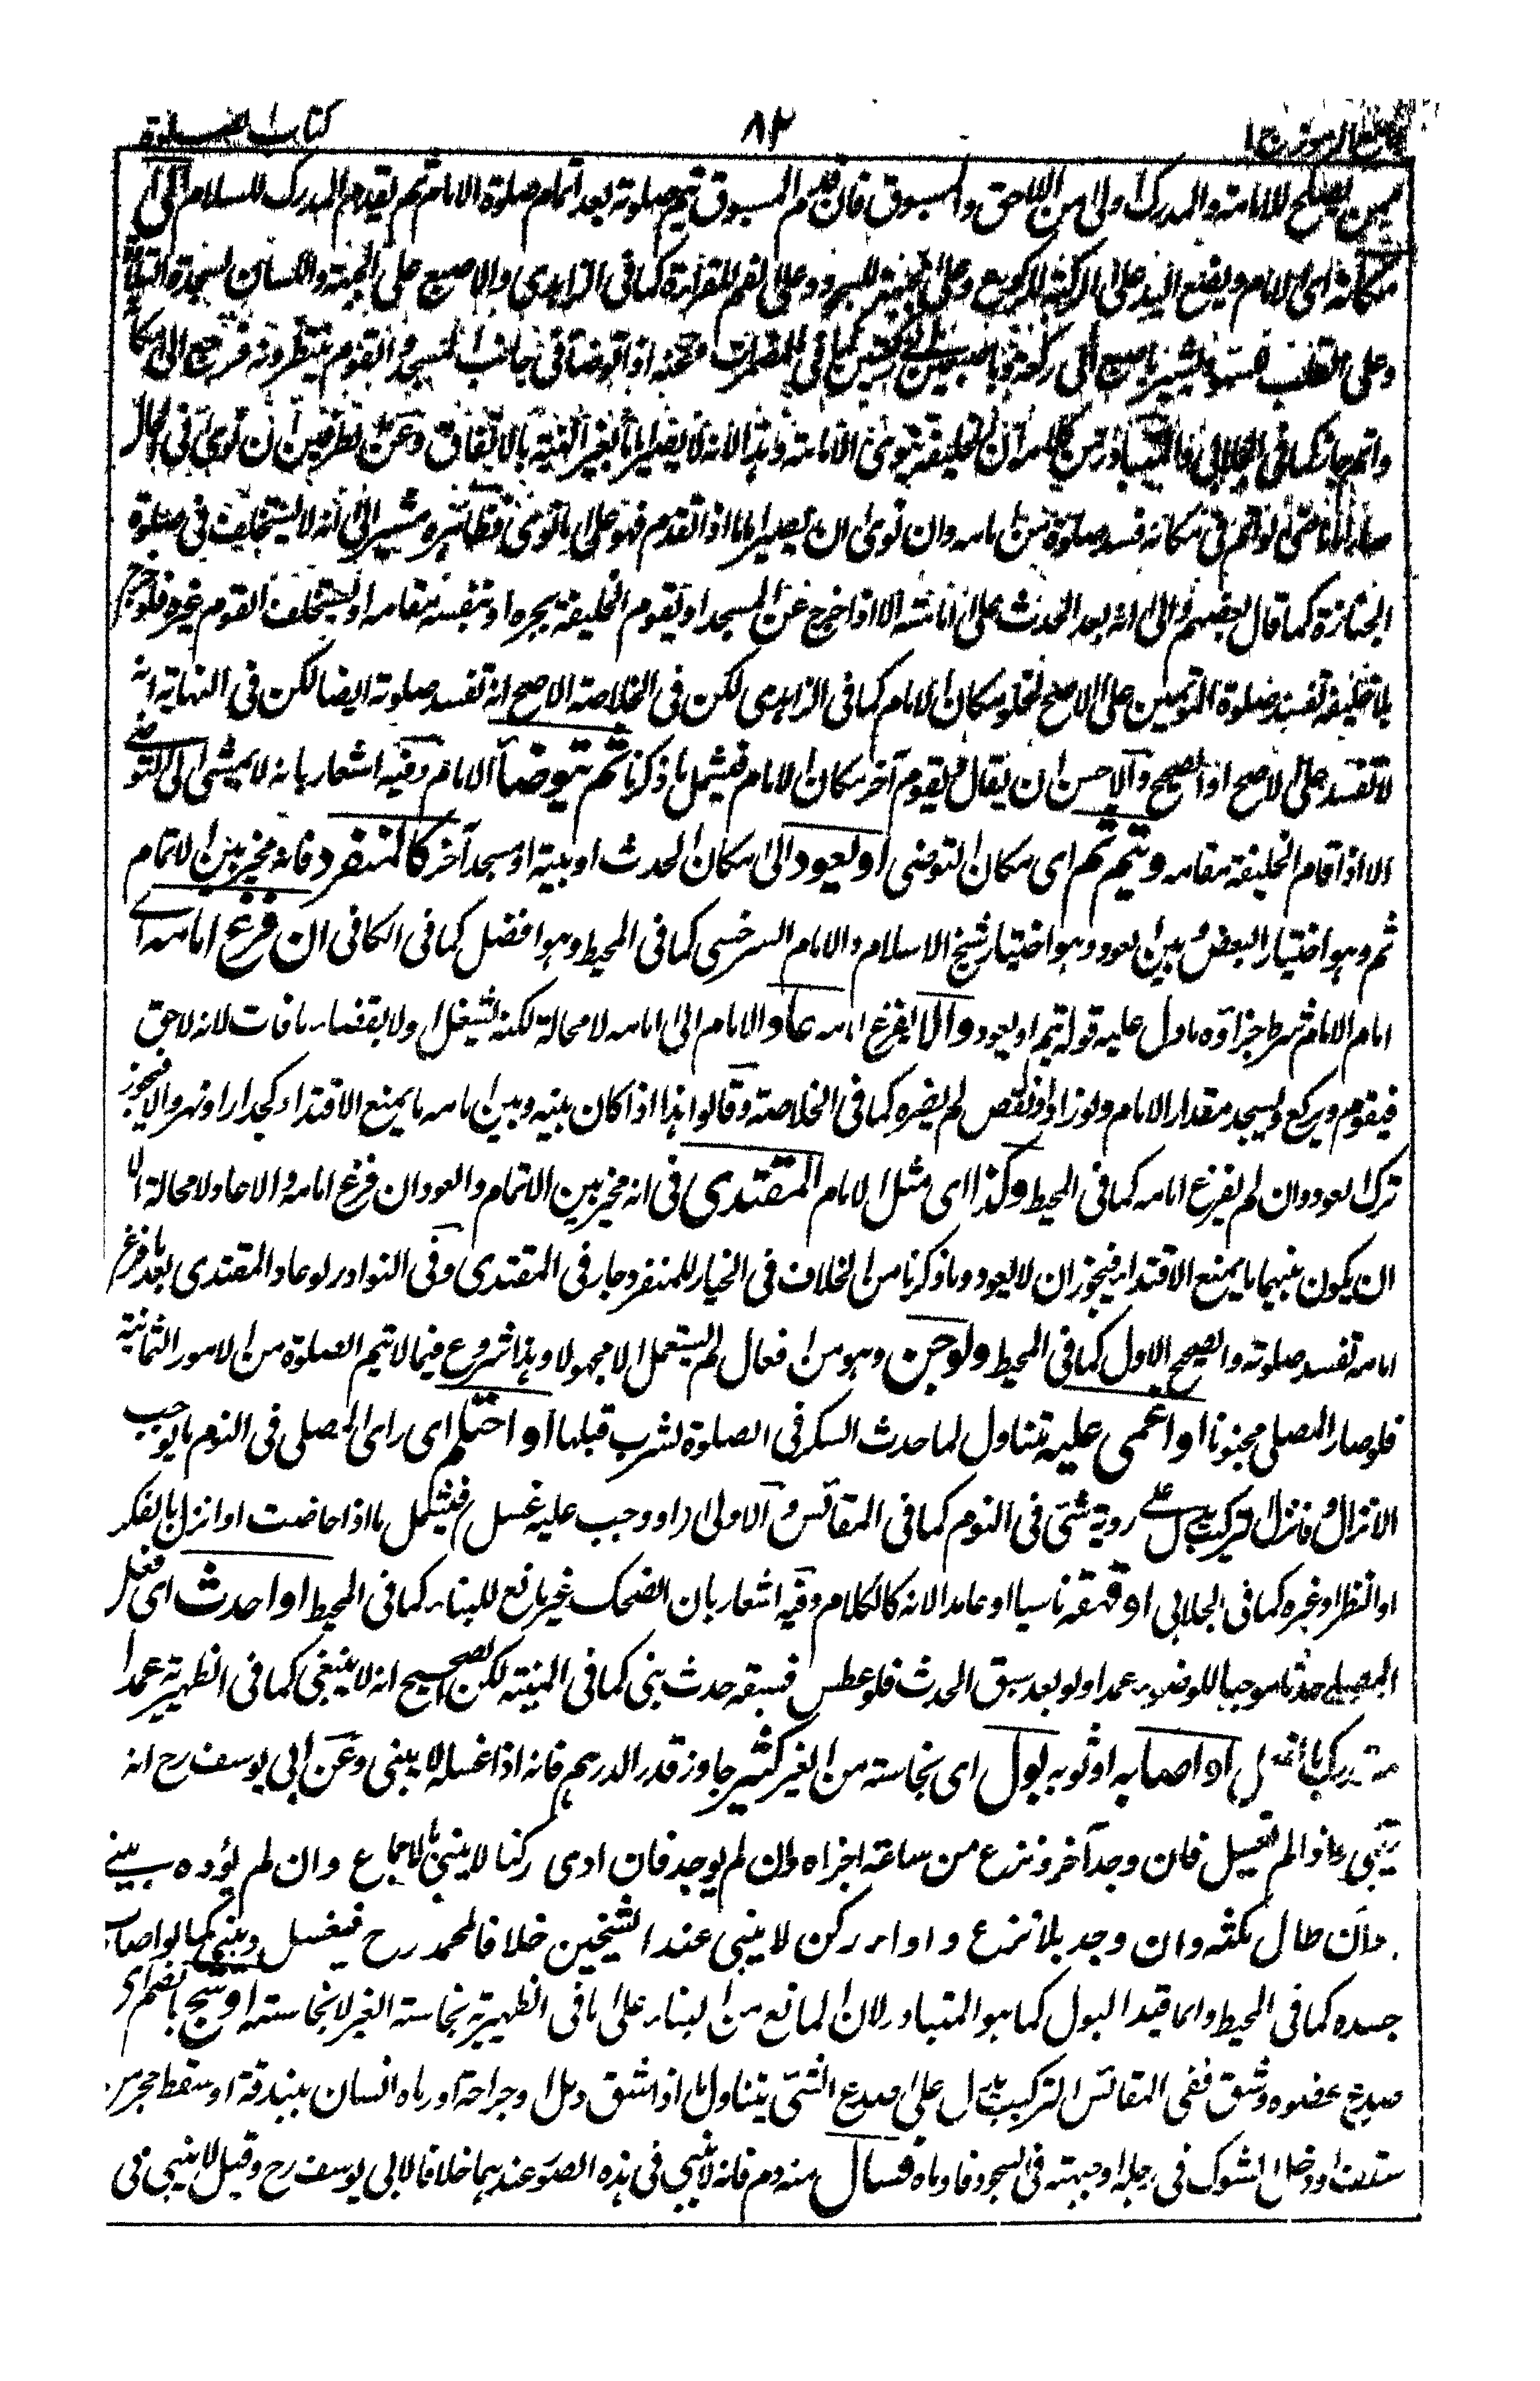 جامع الرموز ج ١ ٨٢ كتاب الصلوة
يصلح للامامة والمدرك اولى من اللاحق والمسبوق فان قدم المسبوق يتم صلوته بعد اتمام صلوة الامام ثم يقدم المدرك للسلام الى
مكانه اى الامام ويضع اليد على الركبة للركوع وعلى الجبهة للسجود وعلى الفم للقراءة كما فى الزاهدى والاصبع على الجبهة واللسان لسجدة التلاوة
وعلى القلب يشير باصبع الى ركعة وباصبعين الى ركعتين كما فى المضمرات وعنه اذا توضأ فى جانب المسجد والقوم ينتظرونه فرجع الى مكانه
واتم جاز كما فى الجلابى والمتبادر من كلامه ان الخليفة ينوى الامامة وهذا لانه لا يصير اماما بغير النية بالاتفاق وعن الطرفين ان نوى فى الحال
صار اماما حتى لو اتم فى مكانه فسد صلوة من امامه وان نوى ان يصير اماما اذا تقدم فهو على ما نوى ومشير الى انه لا يستخلف فى صلوة
الجنازة كما قال بعضهم والى انه بعد الحدث على امامته الا اذا خرج عن المسجد او يقوم الخليفة بجره او بنفسه مقامه او يستخلف القوم غيره فلو خرج
بلا خليفة تفسد صلوة المؤتمين على الاصح لخلو مكان الامام كما فى الزاهدى لكن فى الخلاصة الاصح انه تفسد صلوته ايضا لكن فى النهاية انه
لا تفسد على الاصح او الصحيح والاحسن ان يقال فيقوم آخر مكان الامام فيشمل ما ذكرنا ثم يتوضأ الامام وفيه اشعار بانه لا يمشى الى التوضى
الا اذا قام الخليفة مقامه ويتم ثم اى مكان التوضى او يعود الى مكان الحدث او بيته او مسجد آخر كالمنفرد فانه مخير بين الاتمام
ثم وهو اختيار البعض وبين العود وهو اختيار شيخ الاسلام والامام السرخسى كما فى المحيط وهو افضل كما فى الكافى ان فرغ امامه اى
امام الامام شرط جزاؤه ما دل عليه قوله يتم او يعود والا يفرغ امامه عاد الامام الى امامه لا محالة لكنه يشغل اولا بقضاء ما فات لانه لاحق
فيقوم ويركع ويسجد مقدار الامام ولو زاد او نقص لم يضره كما فى الخلاصة وقالوا هذا اذا كان بينه وبين امامه ما يمنع الاقتداء كجدار او نهر والا فيجوز
ترك العود وان لم يفرغ امامه كما فى المحيط وكذا اى مثل الامام المقتدى فى انه مخير بين الاتمام والعود ان فرغ امامه والا عاد لا محالة الا
ان يكون بينهما ما يمنع الاقتداء فيجوز ان لا يعود وما ذكرنا من الخلاف فى الخيار للمنفرد جار فى المقتدى وفى النوادر لو عاد المقتدى بعد ما فرغ
امامه تفسد صلوته والصحيح الاول كما فى المحيط ولو جن وهو من افعال لم يستعمل الا مجهولا وهذا شروع فيما لا يتم الصلوة من الامور الثمانية
فلو صار المصلى مجنونا او اغمى عليه تتناول لما حدث السكر فى الصلوة لشرب قبلها او احتلم اى راى المصلى فى النوم ما يوجب
الانزال فانزل فتركيب يدل على روية شئ فى النوم كما فى المقائس والاولى او وجب عليه غسل فيشمل ما اذا حاضت او انزل بالفكر
او النظر او غيره كما فى الجلابى او قهقه ناسيا او عامدا لانه كالكلام وفيه اشعار بان الضحك غير مانع للبناء كما فى المحيط او احدث اى فعل
المصلى حدثا موجبا للوضوء عمدا ولو بعد سبق الحدث فلو عطس فسبقه حدث بنى كما فى المنية لكن الصحيح انه لا ينبغى كما فى الظهيرية عمدا
او اصابه او ثوبه بول اى نجاسة من الغير كثير جاوز قدر الدرهم فانه اذا غسله لا يبنى وعن ابى يوسف رح انه
يبنى واذا لم يغسل فان وجد آخر ونزع من ساعته اجزاه وان لم يوجد فان ادى ركنا لا يبنى بالاجماع وان لم يؤده يبنى
وان طال مكثه وان وجد بلا نزع واداء ركن لا يبنى عند الشيخين خلافا لمحمد رح فيغسل ويبنى كما لو اصاب
جسده كما فى المحيط وانما قيد البول كما هو المتبادر لان المانع من البناء على ما فى الظهيرية نجاسة الغير لا نجاسته او شج بالضم اى
صدع عضوه وشق ففى المقائس التركيب يدل على صدع الشئ يتناول ما اذا شق دمل او جراحة او رماه انسان ببندقة او سقط حجر من
سقف او دخل الشوك فى رجله او جبهته فى السجود فادماه فسال منه دم فانه لا يبنى فى هذه الصور عندهما خلافا لابى يوسف رح وقيل لا يبنى فى